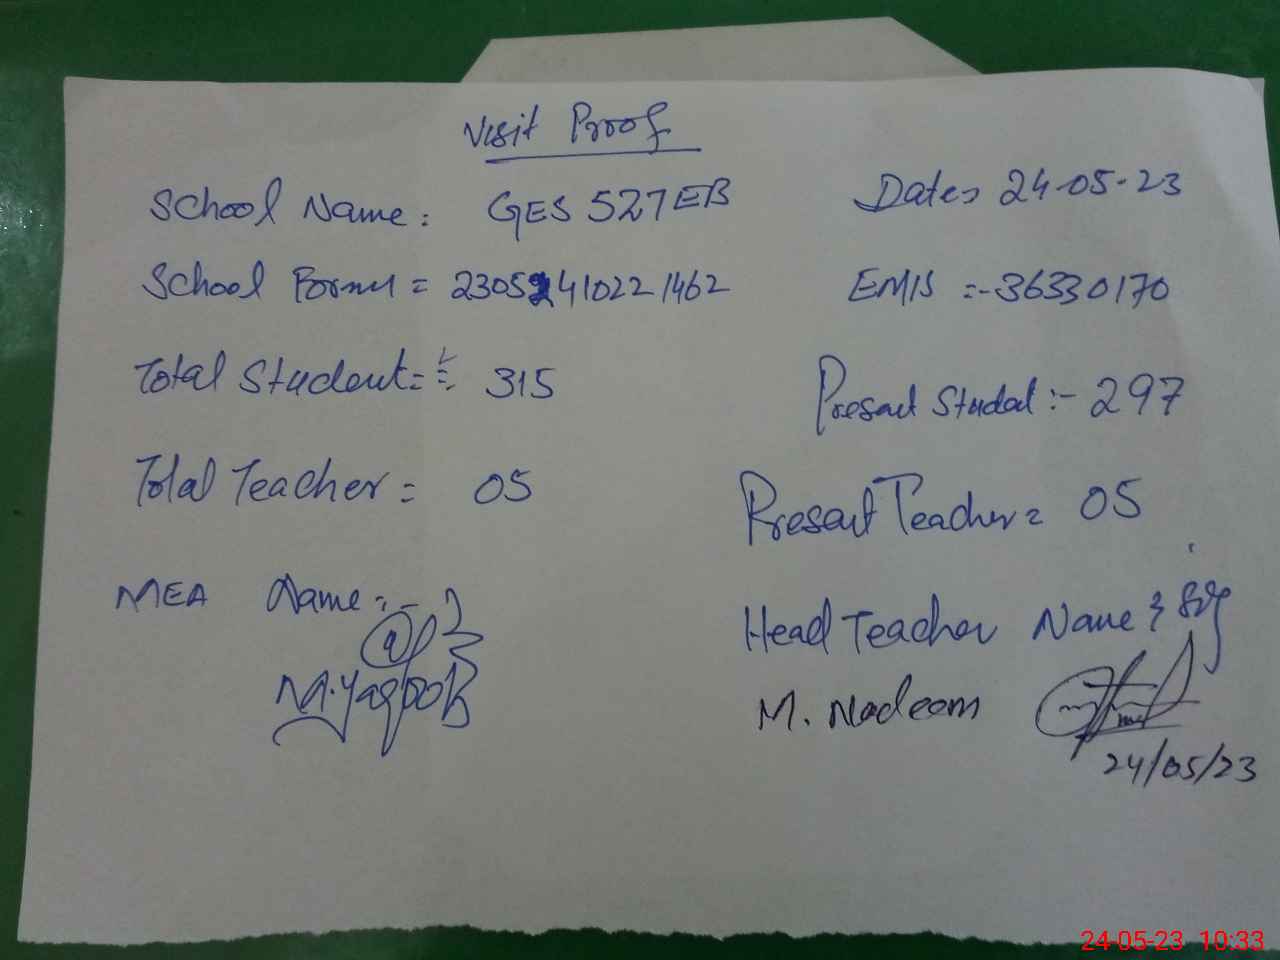 Visit Proof
School Name: GES 527EB
Date: 24-05-23
School Format = 2305241022 1462
EMIS :- 36330170
Total Student = 315
Present Student :- 297
Total Teacher = 05
Present Teacher = 05
MEA Name :-
M. Yaqoob
Head Teacher Name & Sig
M. Nadeem
24/05/23
24-05-23 10:33